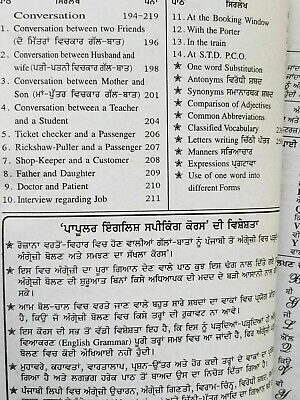 ਪਾਠ ਸਿਰਲੇਖ ਪੰਨਾ
Conversation 194-219
1. Conversation between two Friends
(ਦੋ ਮਿੱਤਰਾਂ ਵਿਚਕਾਰ ਗੱਲ-ਬਾਤ) 196
2. Conversation between Husband and
wife (ਪਤੀ-ਪਤਨੀ ਵਿਚਕਾਰ ਗੱਲ-ਬਾਤ) 198
3. Conversation between Mother and
Son (ਮਾਂ-ਪੁੱਤਰ ਵਿਚਕਾਰ ਗੱਲ-ਬਾਤ) 201
4. Conversation between a Teacher
and a Student 204
5. Ticket checker and a Passenger 206
6. Rickshaw-Puller and a Passenger 207
7. Shop-Keeper and a Customer 208
8. Father and Daughter 209
9. Doctor and Patient 210
10. Interview regarding Job 211
ਪਾਠ ਸਿਰਲੇਖ
11. At the Booking Window
12. With the Porter
13. In the train
14. At S.T.D. P.C.O.
★ One word Substitution
★ Antonyms ਵਿਰੋਧੀ ਸ਼ਬਦ
★ Synonyms ਸਮਾਨਾਰਥਕ ਸ਼ਬਦ
★ Comparison of Adjectives
★ Common Abbreviations
★ Classified Vocabulary
★ Letters writing ਚਿੱਠੀ ਪੱਤਰ
★ Manners ਸਦਾਚਾਰ
★ Expressions ਪ੍ਰਗਟਾਵਾ
★ Use of one word into
different Forms
'ਪਾਪੂਲਰ ਇੰਗਲਿਸ਼ ਸਪੀਕਿੰਗ ਕੋਰਸ' ਦੀ ਵਿਸ਼ੇਸ਼ਤਾ
★ ਰੋਜ਼ਾਨਾ ਵਰਤੋਂ-ਵਿਹਾਰ ਵਿਚ ਹੋਣ ਵਾਲੀਆਂ ਗੱਲਾਂ-ਬਾਤਾਂ ਨੂੰ ਪੰਜਾਬੀ ਤੋਂ ਅੰਗ੍ਰੇਜ਼ੀ ਵਿਚ
ਅੰਗ੍ਰੇਜ਼ੀ ਬੋਲਣ ਅਤੇ ਸਮਝਣ ਦਾ ਸੌਖਲਾ ਕੋਰਸ।
★ ਇਸ ਵਿਚ ਅੰਗ੍ਰੇਜ਼ੀ ਦਾ ਪੂਰਾ ਗਿਆਨ ਦੇਣ ਵਾਲੇ ਪਾਠ ਕੁਝ ਇਸ ਢੰਗ ਨਾਲ ਦਿੱਤੇ ਗਏ
ਅੰਗ੍ਰੇਜ਼ੀ ਬੋਲਣ ਦੀ ਸ਼ੁਰੂਆਤ ਬਿਨਾਂ ਕਿਸੇ ਅਧਿਆਪਕ ਦੀ ਮਦਦ ਦੇ ਬੜੀ ਆਸਾਨੀ ਨਾਲ
★ ਆਮ ਬੋਲ-ਚਾਲ ਵਿਚ ਵਰਤੇ ਜਾਣ ਵਾਲੇ ਬਹੁਤ ਸਾਰੇ ਸ਼ਬਦਾਂ ਦਾ ਵਾਕਾਂ ਵਿਚ ਪ੍ਰਯੋਗ
ਹੈ, ਕਿਉਂ ਜੋ ਅੰਗ੍ਰੇਜ਼ੀ ਬੋਲਣ ਸਮੇਂ ਕਿਸੇ ਤਰ੍ਹਾਂ ਦੀ ਰੁਕਾਵਟ ਨਾ ਆਵੇ।
★ ਇਸ ਕੋਰਸ ਦੀ ਸਭ ਤੋਂ ਵੱਡੀ ਵਿਸ਼ੇਸ਼ਤਾ ਇਹ ਹੈ, ਕਿ ਇਸ ਨੂੰ ਪੜ੍ਹਦਿਆਂ-ਪੜ੍ਹਦਿਆਂ
ਵਿਆਕਰਣ (English Grammar) ਪੂਰੀ ਤਰ੍ਹਾਂ ਸਮਝ ਆ ਜਾਂਦਾ ਹੈ, ਜਿਸ ਨਾਲ ਅੰਗ੍ਰੇਜ਼ੀ
ਵਿਚ ਕੋਈ ਔਖਿਆਈ ਨਹੀਂ ਹੁੰਦੀ।
★ ਮੁਹਾਵਰੇ, ਕਹਾਵਤਾਂ, ਵਾਰਤਾਲਾਪ, ਪ੍ਰਸ਼ਨ-ਉੱਤਰ ਅਤੇ ਹੋਰ ਕਈ ਤਰ੍ਹਾਂ ਦੇ ਵਾਕਾਂ ਦਾ
ਗਿਆ ਹੈ ਅਤੇ ਲਗਭਗ ਹਰੇਕ ਪਾਠ ਤੋਂ ਬਾਅਦ ਉਸ ਦਾ ਨਿਚੋੜ ਦਿੱਤਾ ਗਿਆ ਹੈ।
★ ਪੰਜਾਬੀ ਲਿਪੀ ਵਿਚ ਅੰਗ੍ਰੇਜ਼ੀ ਉਚਾਰਨ, ਅੰਗ੍ਰੇਜ਼ੀ ਗਿਣਤੀ, ਵਿਰਾਮ-ਚਿੰਨ੍ਹ,